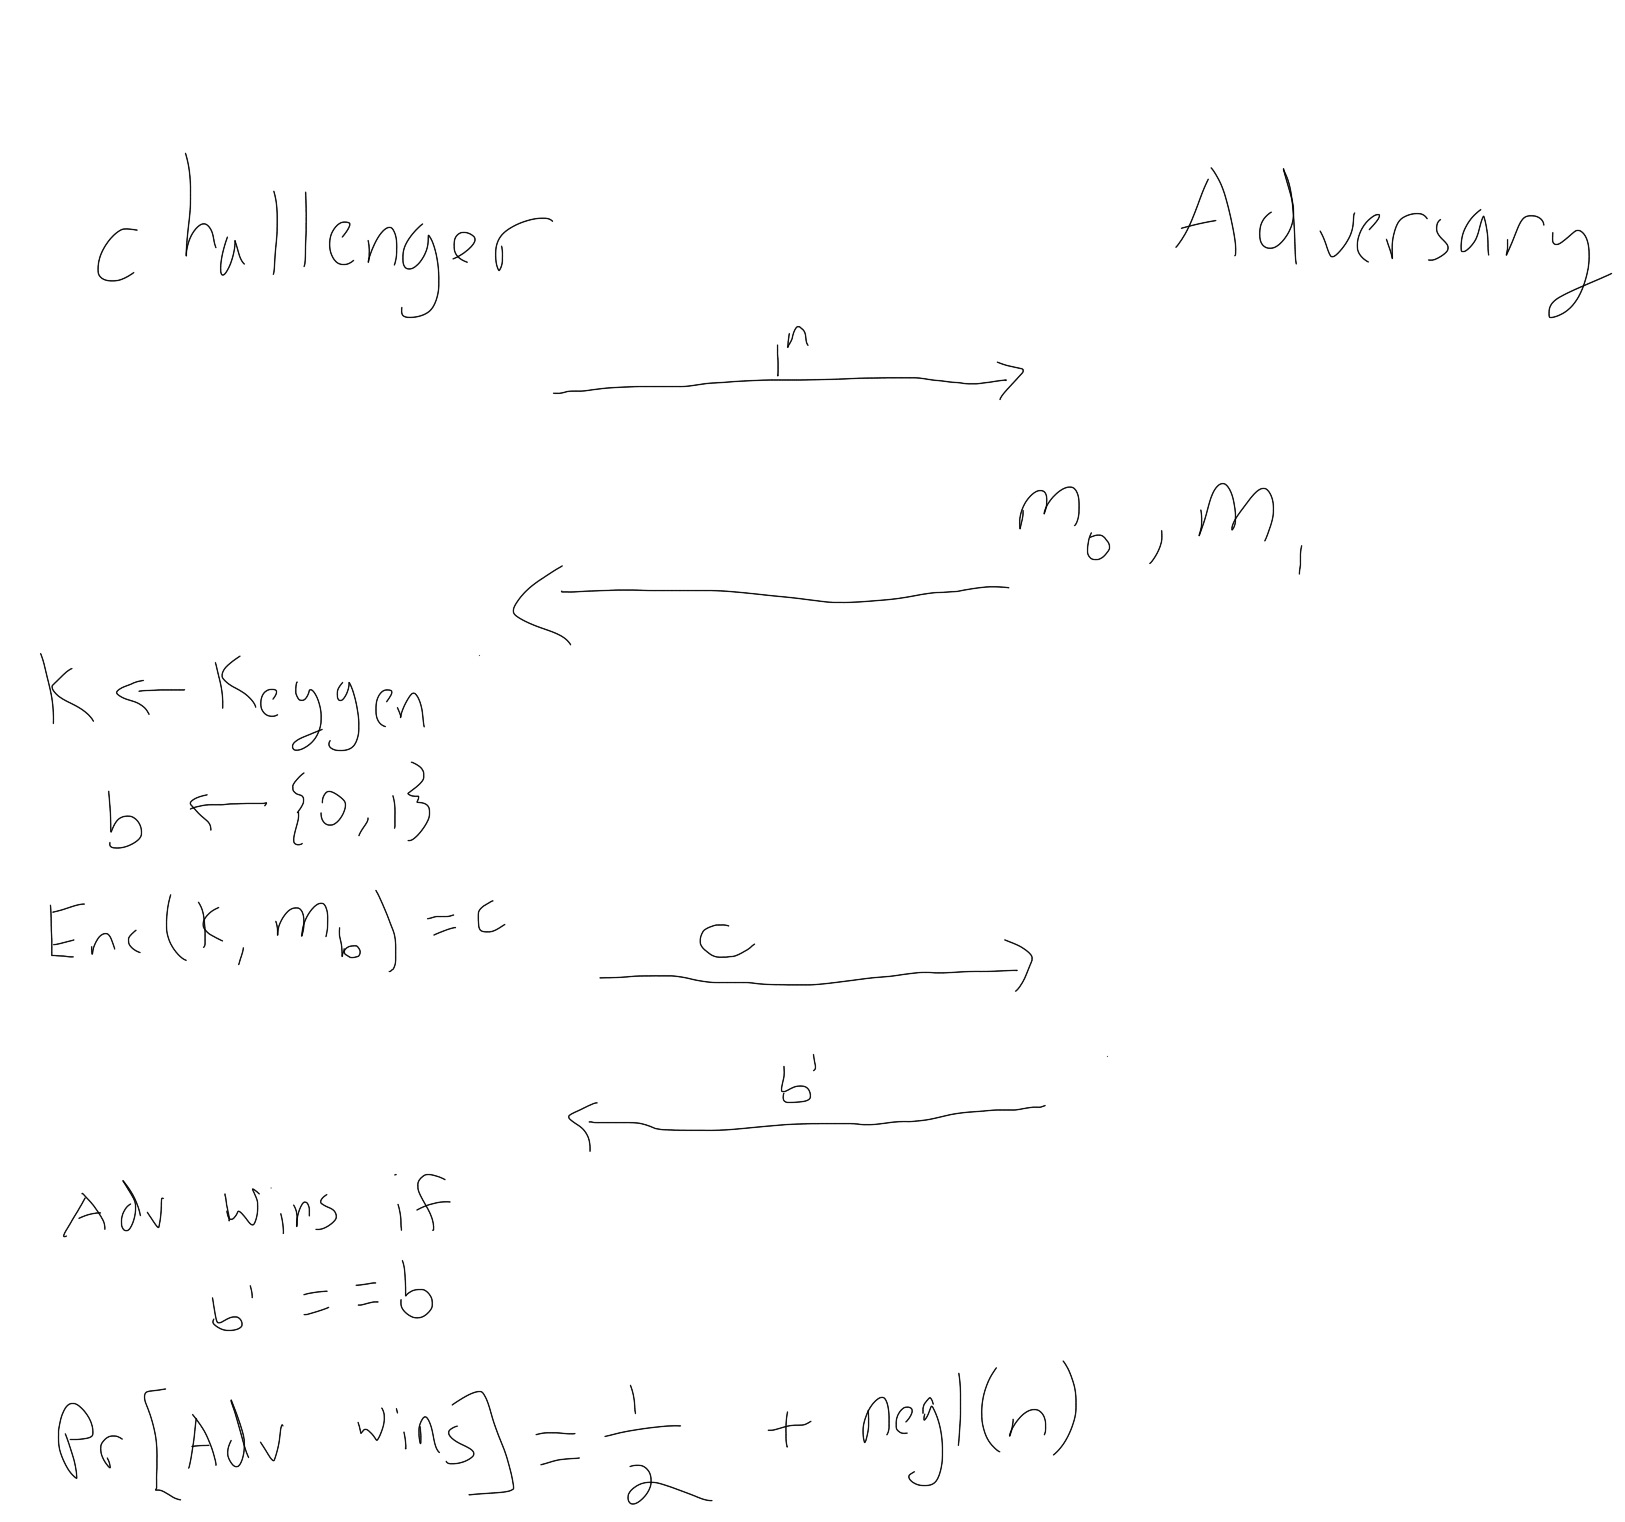 challenger Adversary
1^n
m_0, m_1
K ← Keygen
b ← {0,1}
Enc(K, m_b) = c
c
b'
Adv wins if
b' == b
Pr[Adv wins] = 1/2 + negl(n)